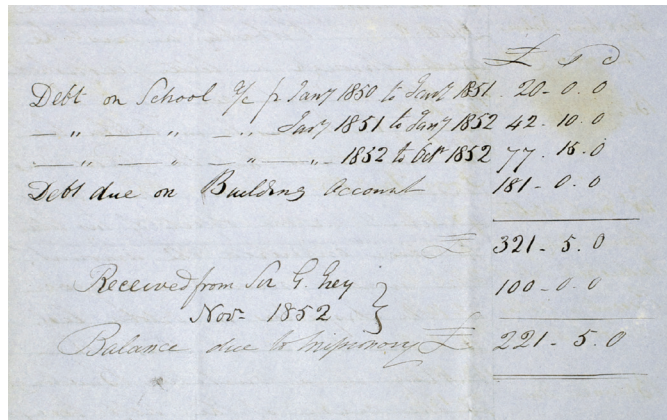 £ s d
Debt on School a/c fr Jany 1850 to Jany 1851 20 - 0 . 0
— " — " — " Jany 1851 to Jany 1852 42 . 10 . 0
— " — " — " — " 1852 to Octr 1852 77 . 15 . 0
Debt due on Building Account 181 - 0 . 0
£ 321 - 5 . 0
Received from Sir G. Grey 100 - 0 . 0
Novr 1852 }
Balance due to Missionary £ 221 - 5 . 0